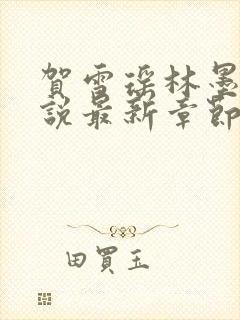 賀雪瑤林墨
說最新章節
田買玉